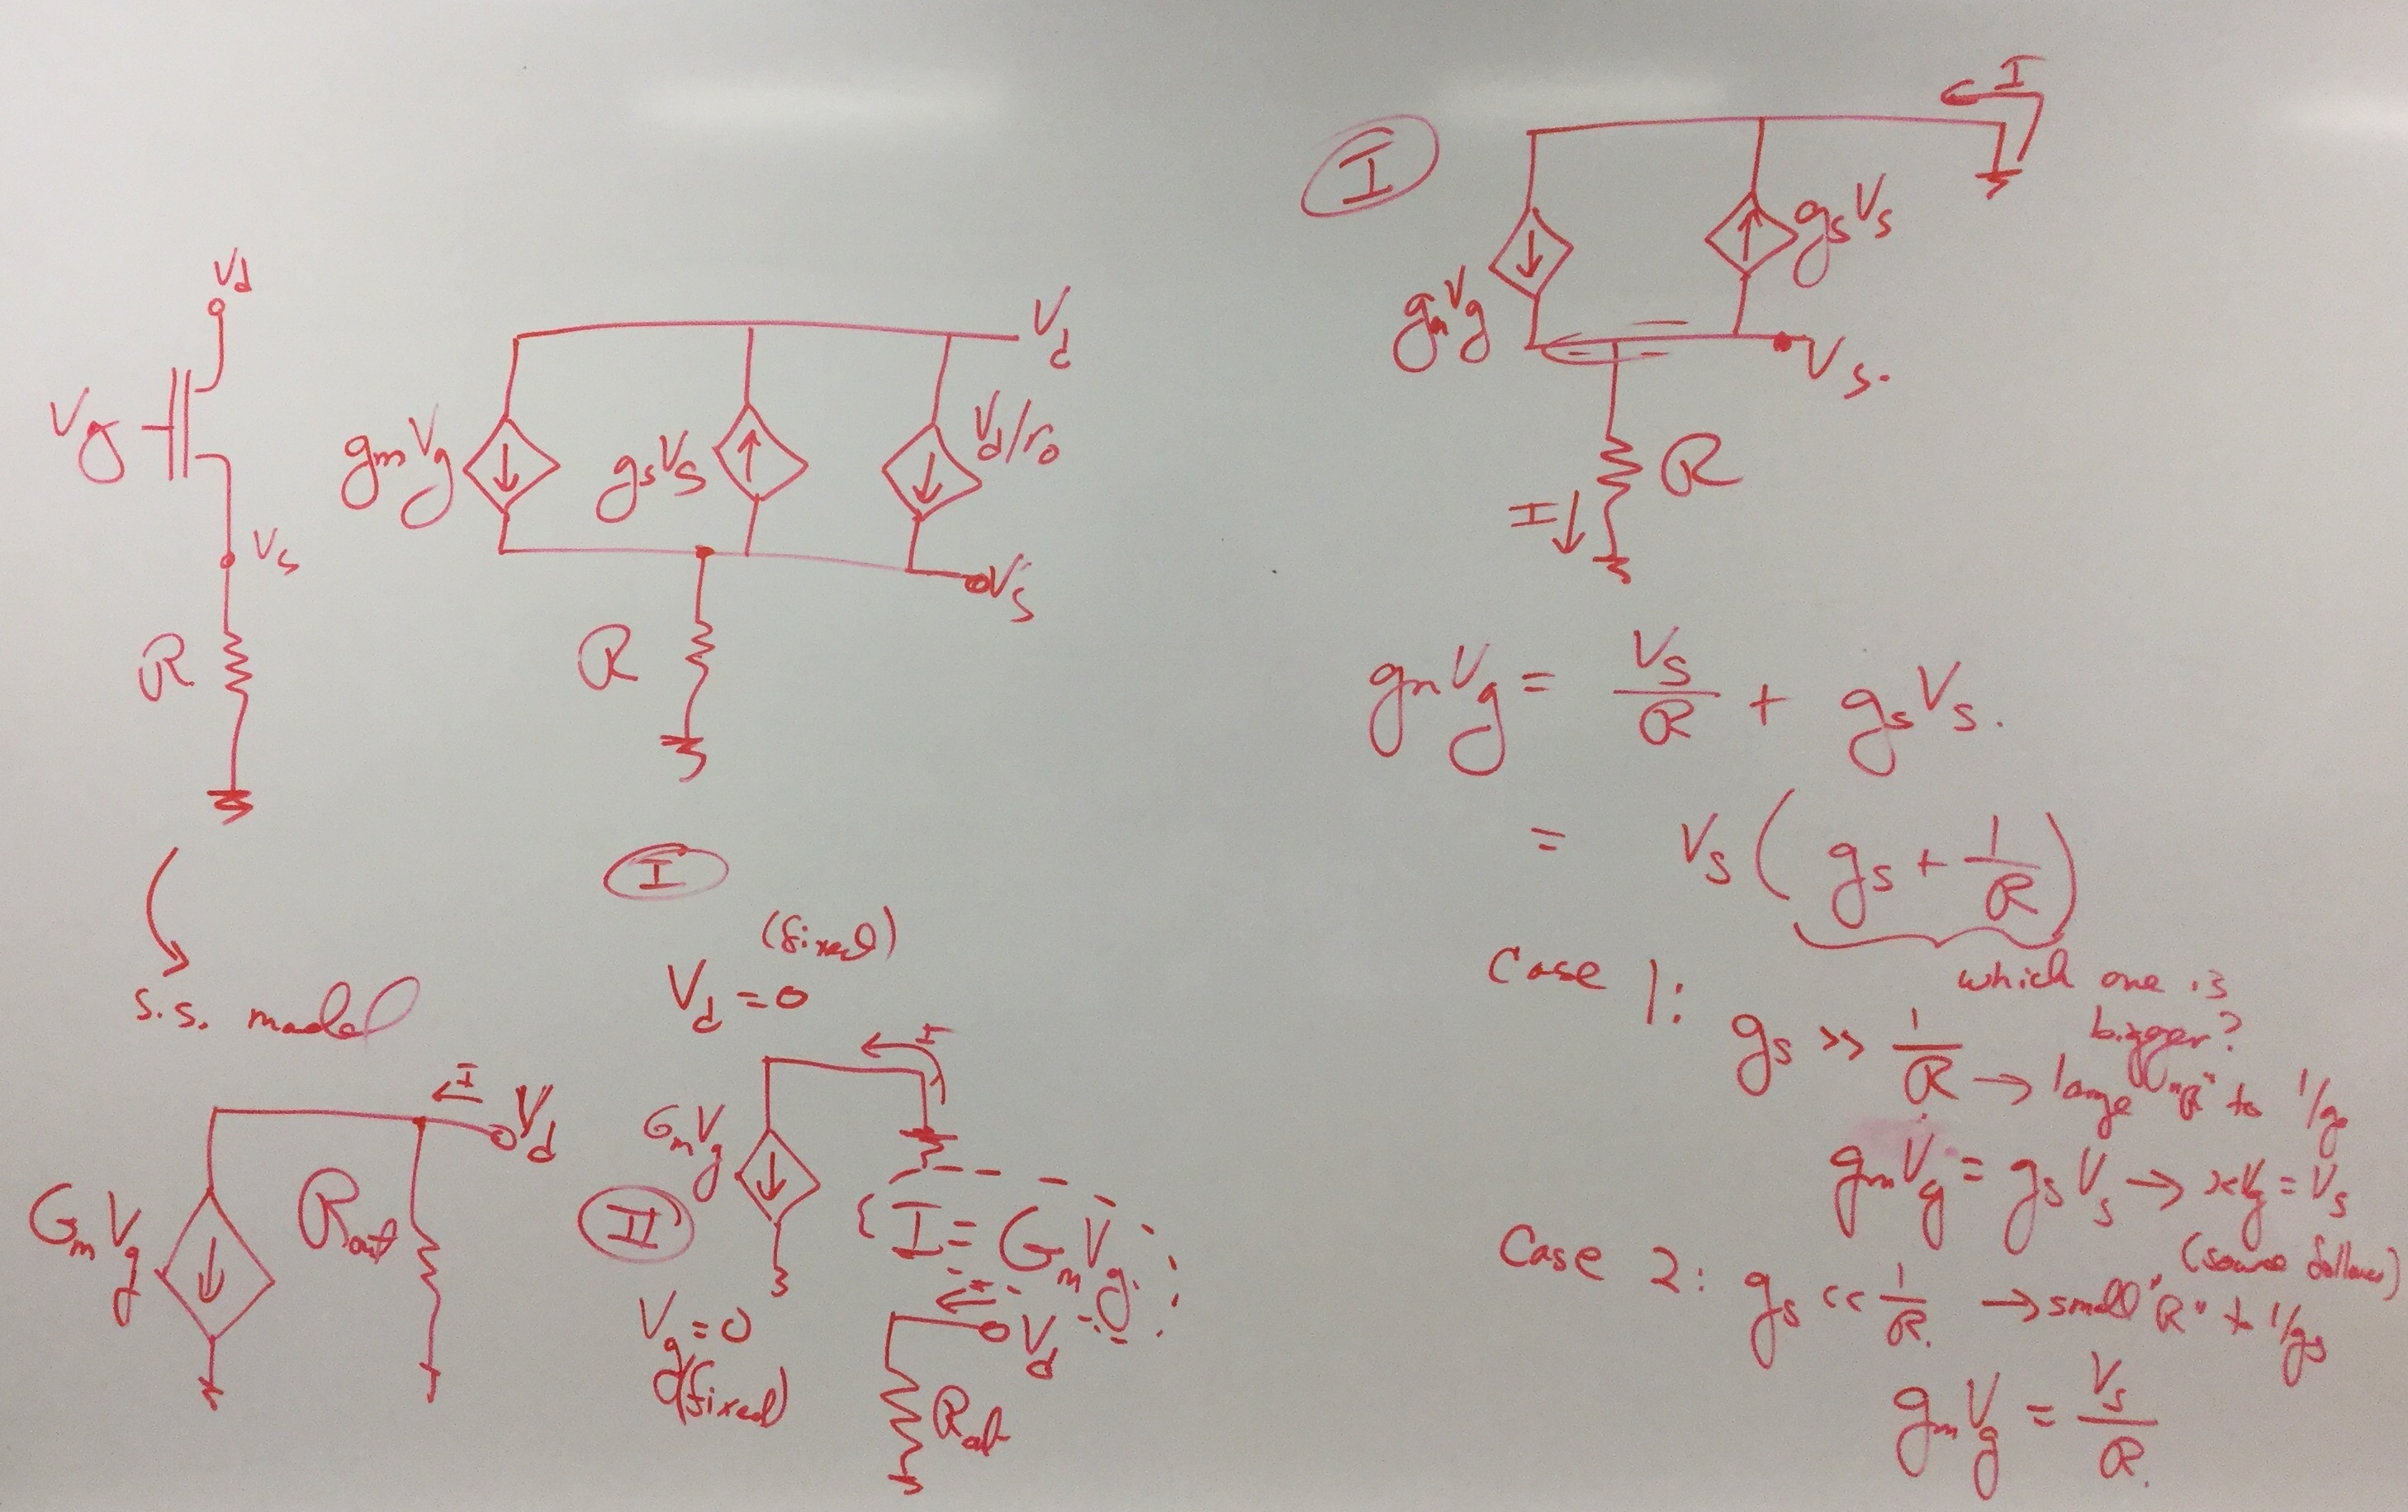 Vd
Vg
Vs
R
s.s. model
gmVg
gsVs
Vd/ro
Vd
Vs
R
I
(fixed)
Vd = 0
I
GmVg
I = GmVg
I
Vd
GmVg
Rout
II
Vg = 0
(fixed)
I
Vd
Rout
I
I
gmVg
gsVs
Vs.
R
I
gmVg = Vs/R + gsVs.
= Vs ( gs + 1/R )
which one is
bigger?
Case 1:
gs >> 1/R → large "R" to 1/gs
gmVg = gsVs → κVg = Vs
(source follower)
Case 2: gs << 1/R. → small "R" to 1/gs
gmVg = Vs/R.